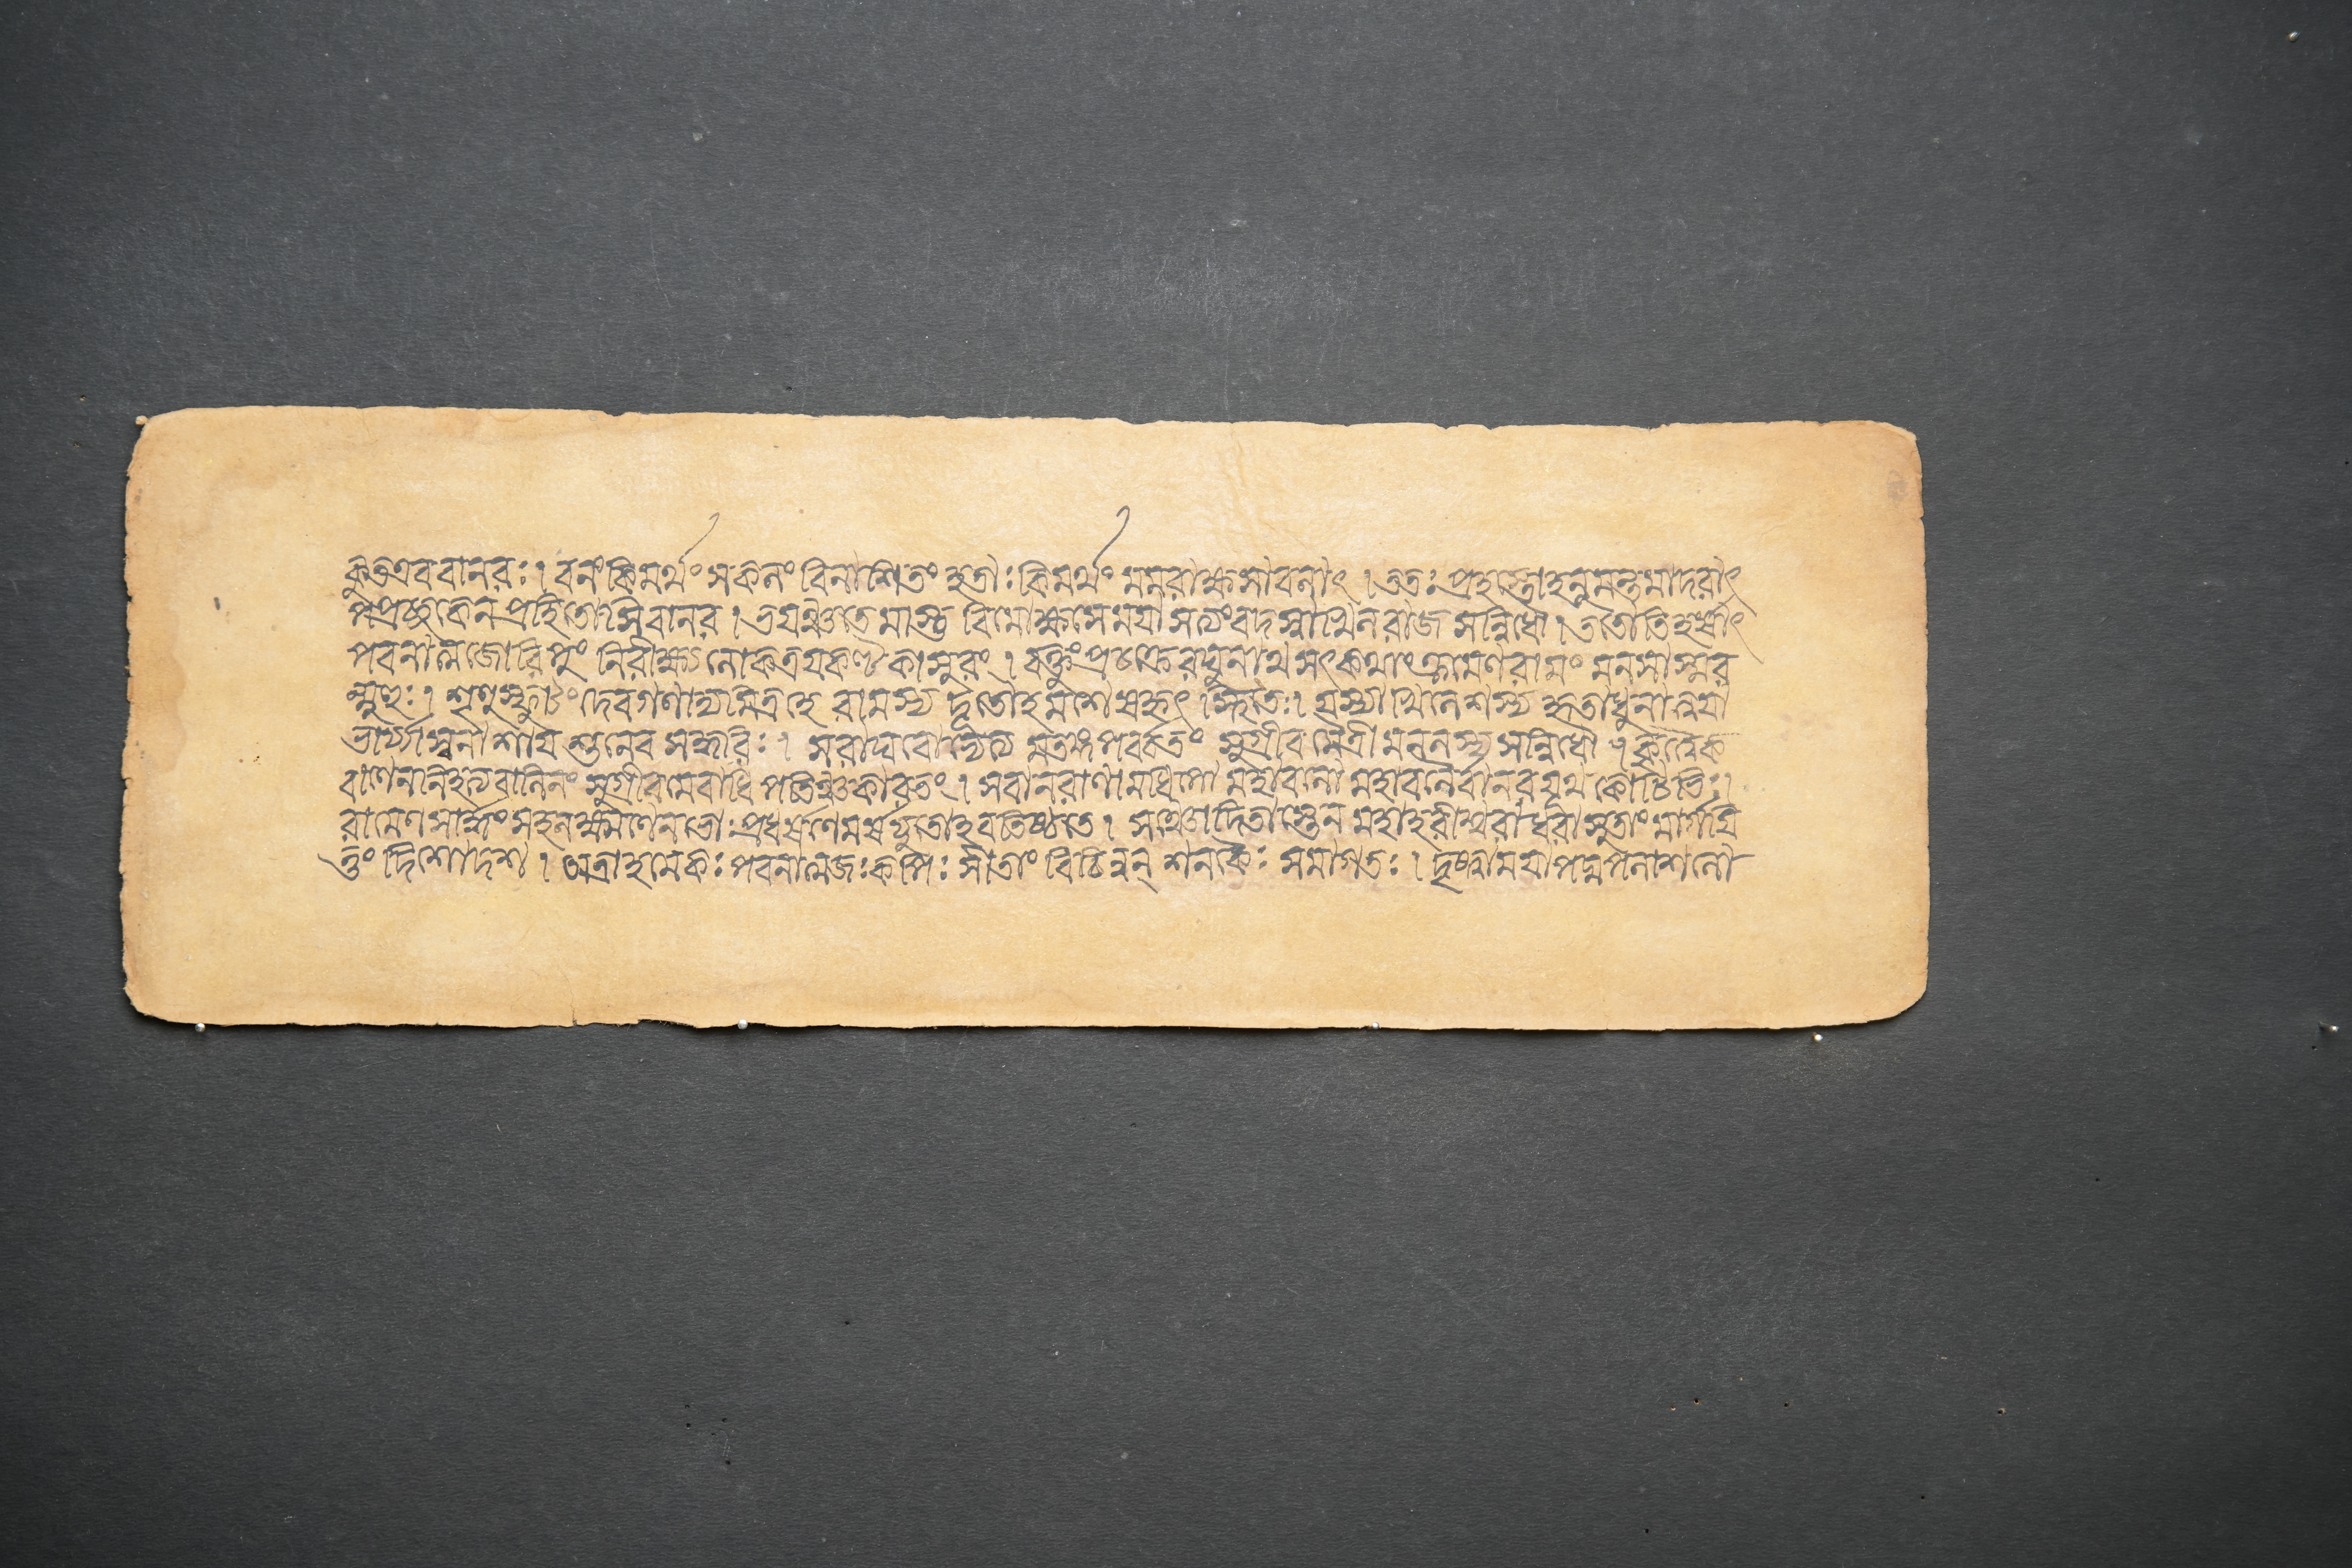 কুতএববানরঃ। বনং কিমর্থং সকলং বিনাশিতং হৃতাঃ কিমর্থং মমরাক্ষসাবলাৎ । ততঃ প্রহস্তোহনুমন্তমাদরাৎ
পপ্রচ্ছকেন প্রহিতোসিবানর । ভয়ঞ্চতে মাস্তু বিমোক্ষ্যসেময়া সত্যংবদস্বাখিলরাজসন্নিধৌ । ততোতিহর্ষাৎ
পবনাত্মজোরিপুং নিরীক্ষ্য লোকত্রয়কণ্টকাসুরং । বক্তুং প্রচক্রেরঘুনাথসৎকথাং ক্রমেণরামং মনসাস্মর
ন্মুহুঃ । শৃণুস্ফুটং দেবগণাদ্যমিত্রহে রামস্য দূতোহমশেষহৃৎস্থিতেঃ। যস্যাখিলেশস্য হৃতাধুনাত্বয়া
ভার্য্যাস্বনাশায় শুনেব সদ্ধবিঃ । সরাঘবোভ্যেত্য মতঙ্গপর্ব্বতং সুগ্রীব মৈত্রীমনলস্য সন্নিধৌ । কৃত্বৈক
বাণেননিহত্যবালিনং সুগ্রীবমেবাধিপতিঞ্চকারতং । সবানরাণামধিপো মহাবলো মহাবলৈর্বানরযূথকোটিভিঃ।
রামেণ সার্দ্ধং সহলক্ষ্মণেনভোঃ প্রবর্ষণেমর্ষযুতোহবতিষ্ঠতে । সঞ্চোদিতাস্তেন মহাহরীশ্বরা ধরাসুতাং মার্গয়ি
তুং দিশোদশ । তত্রাহমেকঃ পবনাত্মজঃকপিঃ সীতাং বিচিন্বন্ শনকৈঃ সমাগতঃ । দৃষ্টাময়াপদ্মপলাশলো